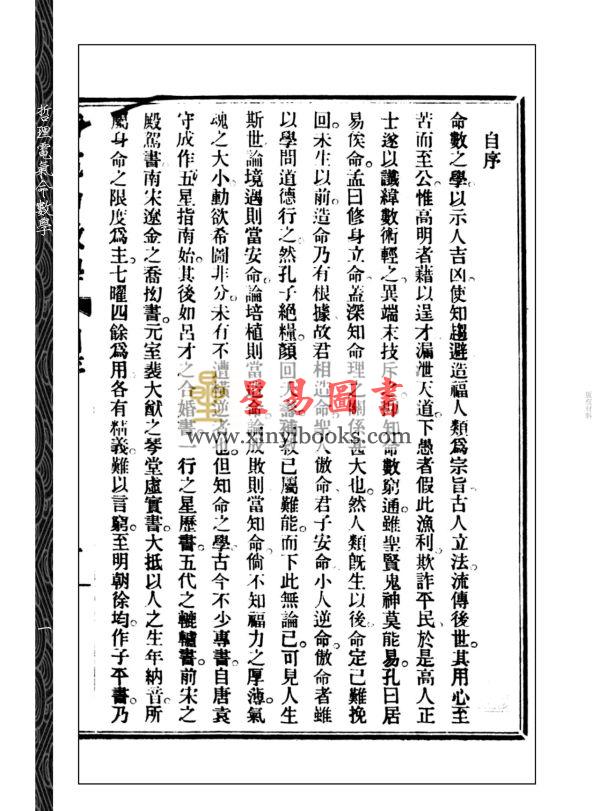 自序
命數之學以示人吉凶。使知趨避造福人類爲宗旨古人立法流傳後世。其用心至
苦而至公惟高明者藉以逞才漏泄天道下愚者假此漁利欺詐平民於是高人正
士遂以讖緯數術輕之。異端末技斥之。抑知命數窮通雖聖賢鬼神莫能易。孔曰居
易俟命。孟曰修身立命蓋深知命理之關係甚大也然人類旣生以後命定已難挽
回。未生以前。造命乃有根據故君相造命。聖人傲命君子安命小人逆命。傲命者雖
以學問道德行之然孔子絕糧。顏回已屬難能。而下此無論已。可見人生
斯世論境遇則當安命。論培植則當命。論成敗則當知命倘不知福力之厚薄。氣
魂之大小動欲希圖非分。未有不遭橫逆者也。但知命之學古今不少專書自唐袁
守成作五星指南始。其後如呂才之合婚書一行之星歷書。五代之轆轤書。前宋之
殿駕書南宋遼金之喬拗書元室裴大猷之琴堂虛實書。大抵以人之生年納音所
屬身命之限度爲主。七曜四餘爲用各有精義。難以言窮。至明朝徐均作子平書。乃
哲理電氣命數學
一
版權材料
星易圖書
www.xinyibooks.com